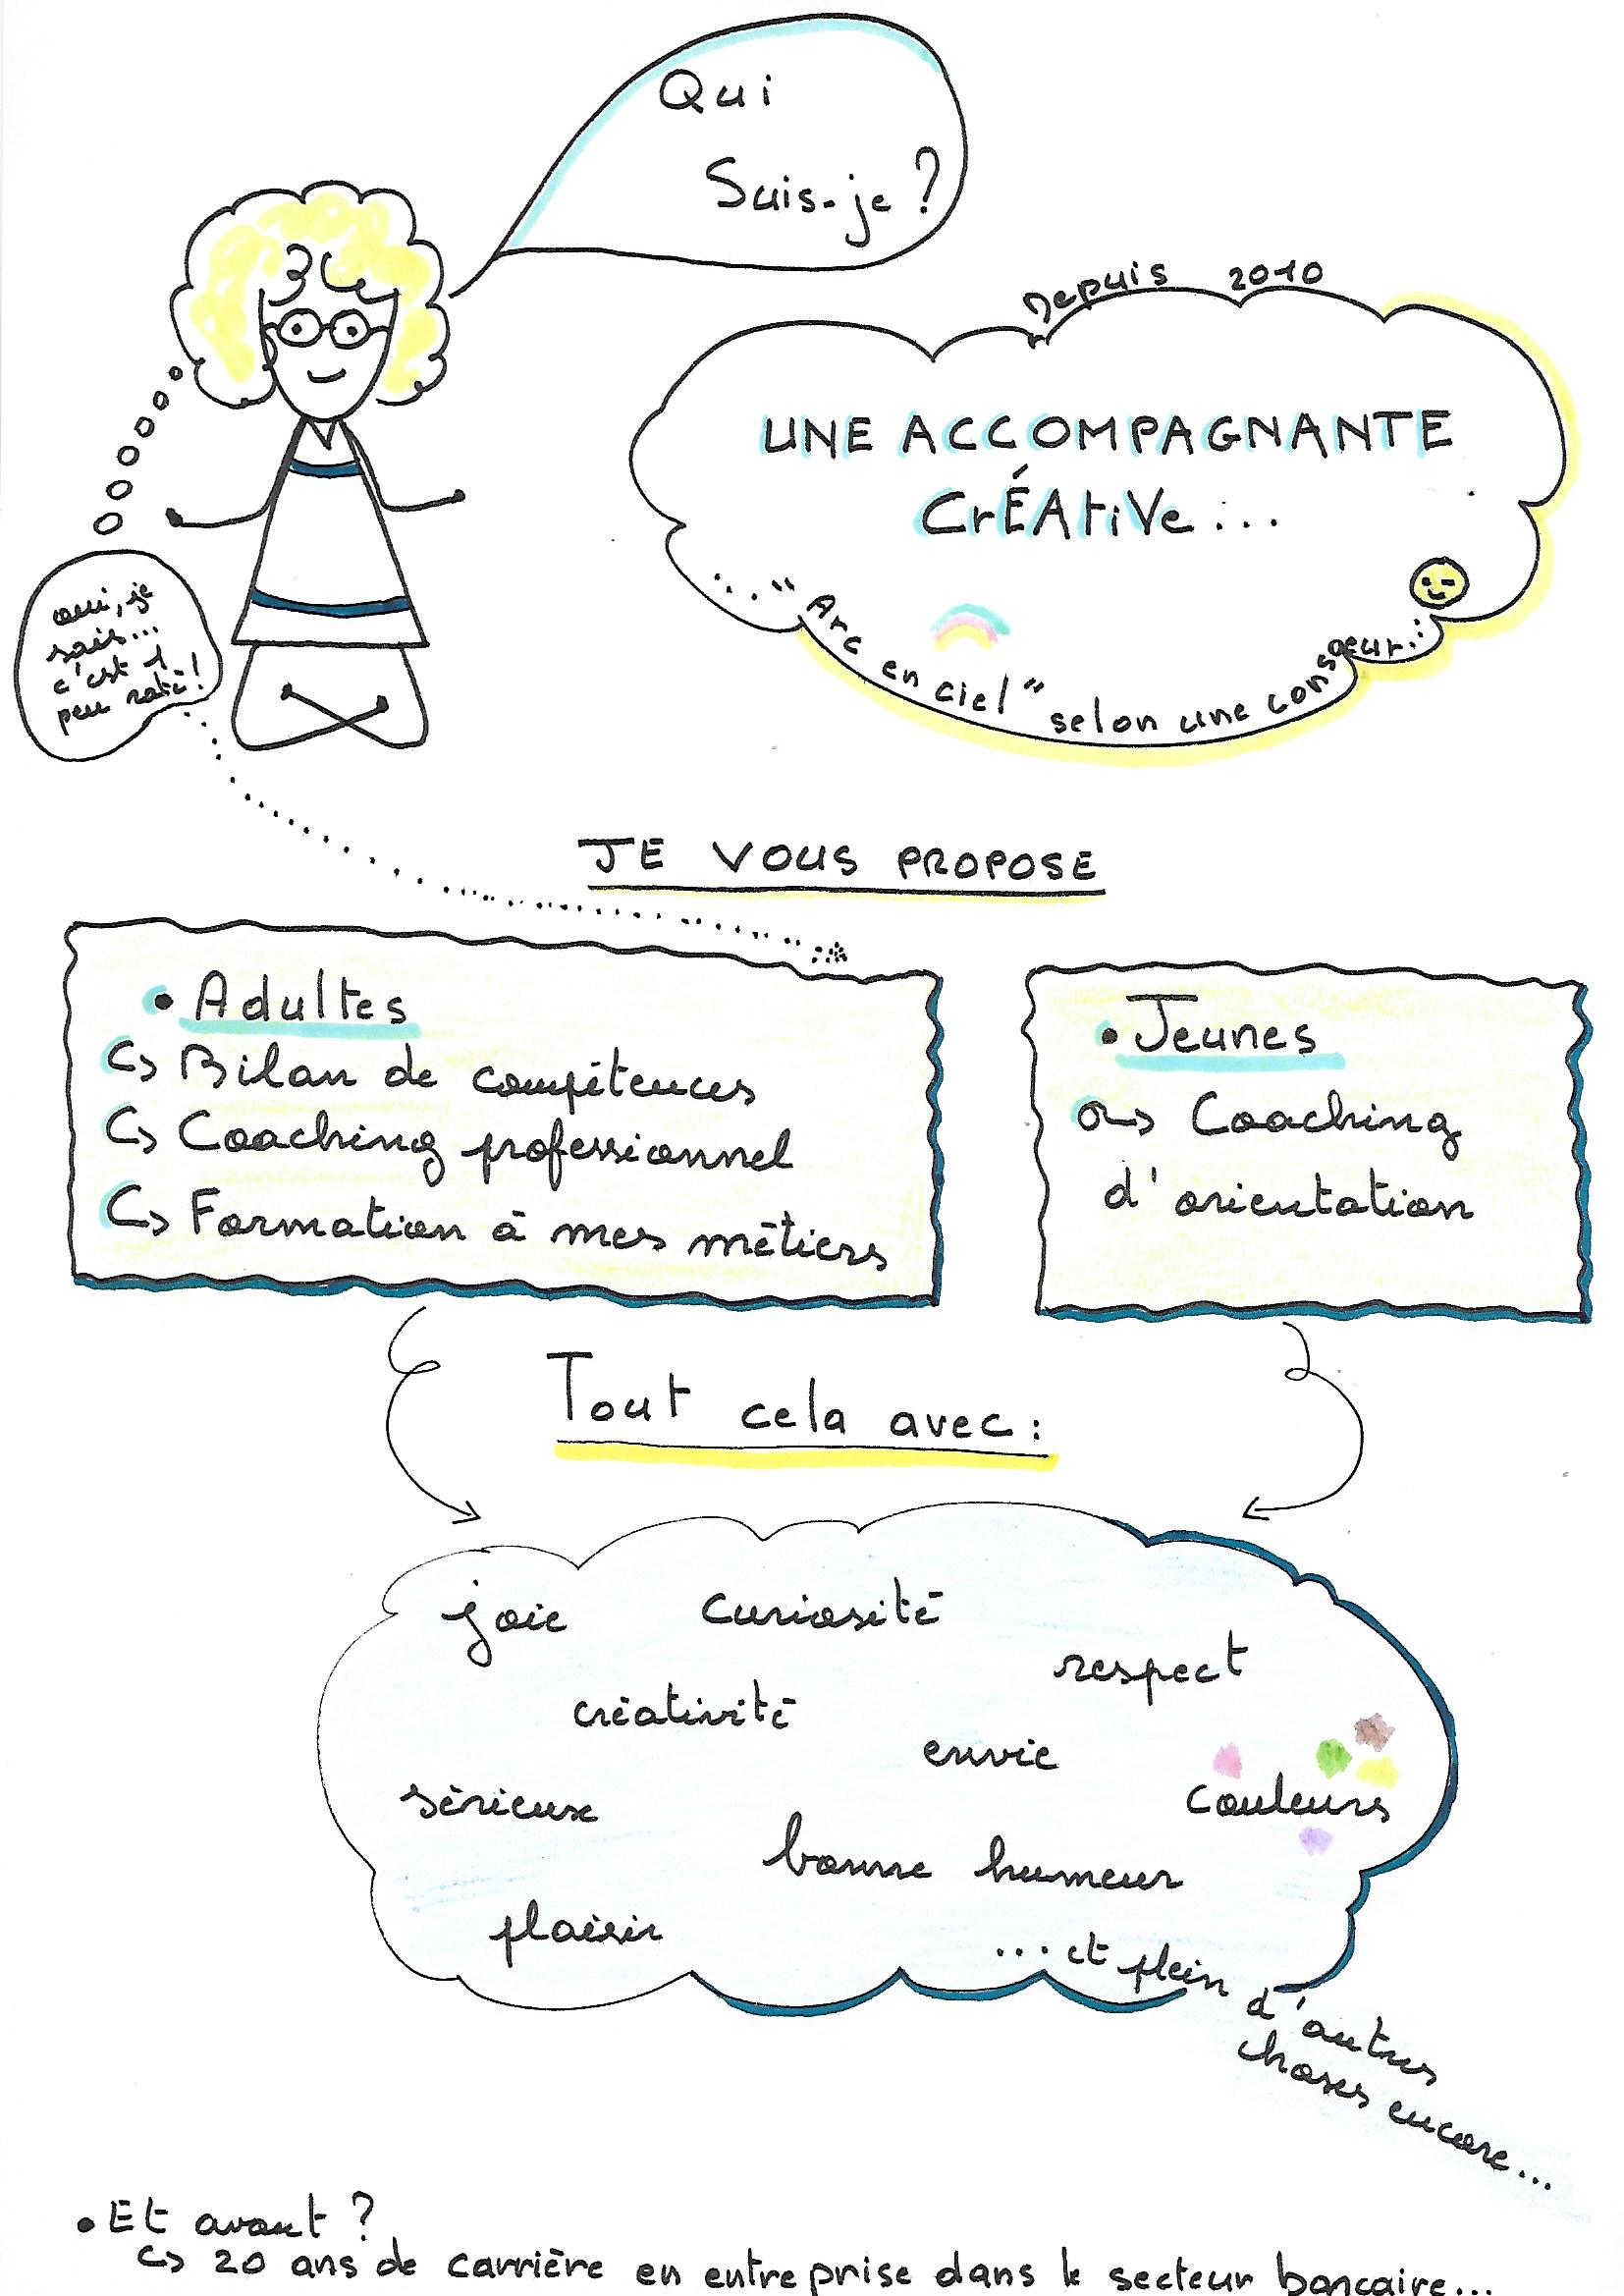 Qui
Suis-je ?
Depuis 2010
UNE ACCOMPAGNANTE
CrÉAtiVe ...
..." Arc en ciel " selon une consoeur...
oui, je
sais...
c'est 1
peu raté !
JE VOUS PROPOSE
• Adultes
↪ Bilan de compétences
↪ Coaching professionnel
↪ Formation à mes métiers
• Jeunes
↪ Coaching
d'orientation
Tout cela avec :
joie
curiosité
respect
créativité
envie
sérieux
couleurs
bonne humeur
plaisir
... et plein d'autres
choses encore...
• Et avant ?
↪ 20 ans de carrière en entreprise dans le secteur bancaire...